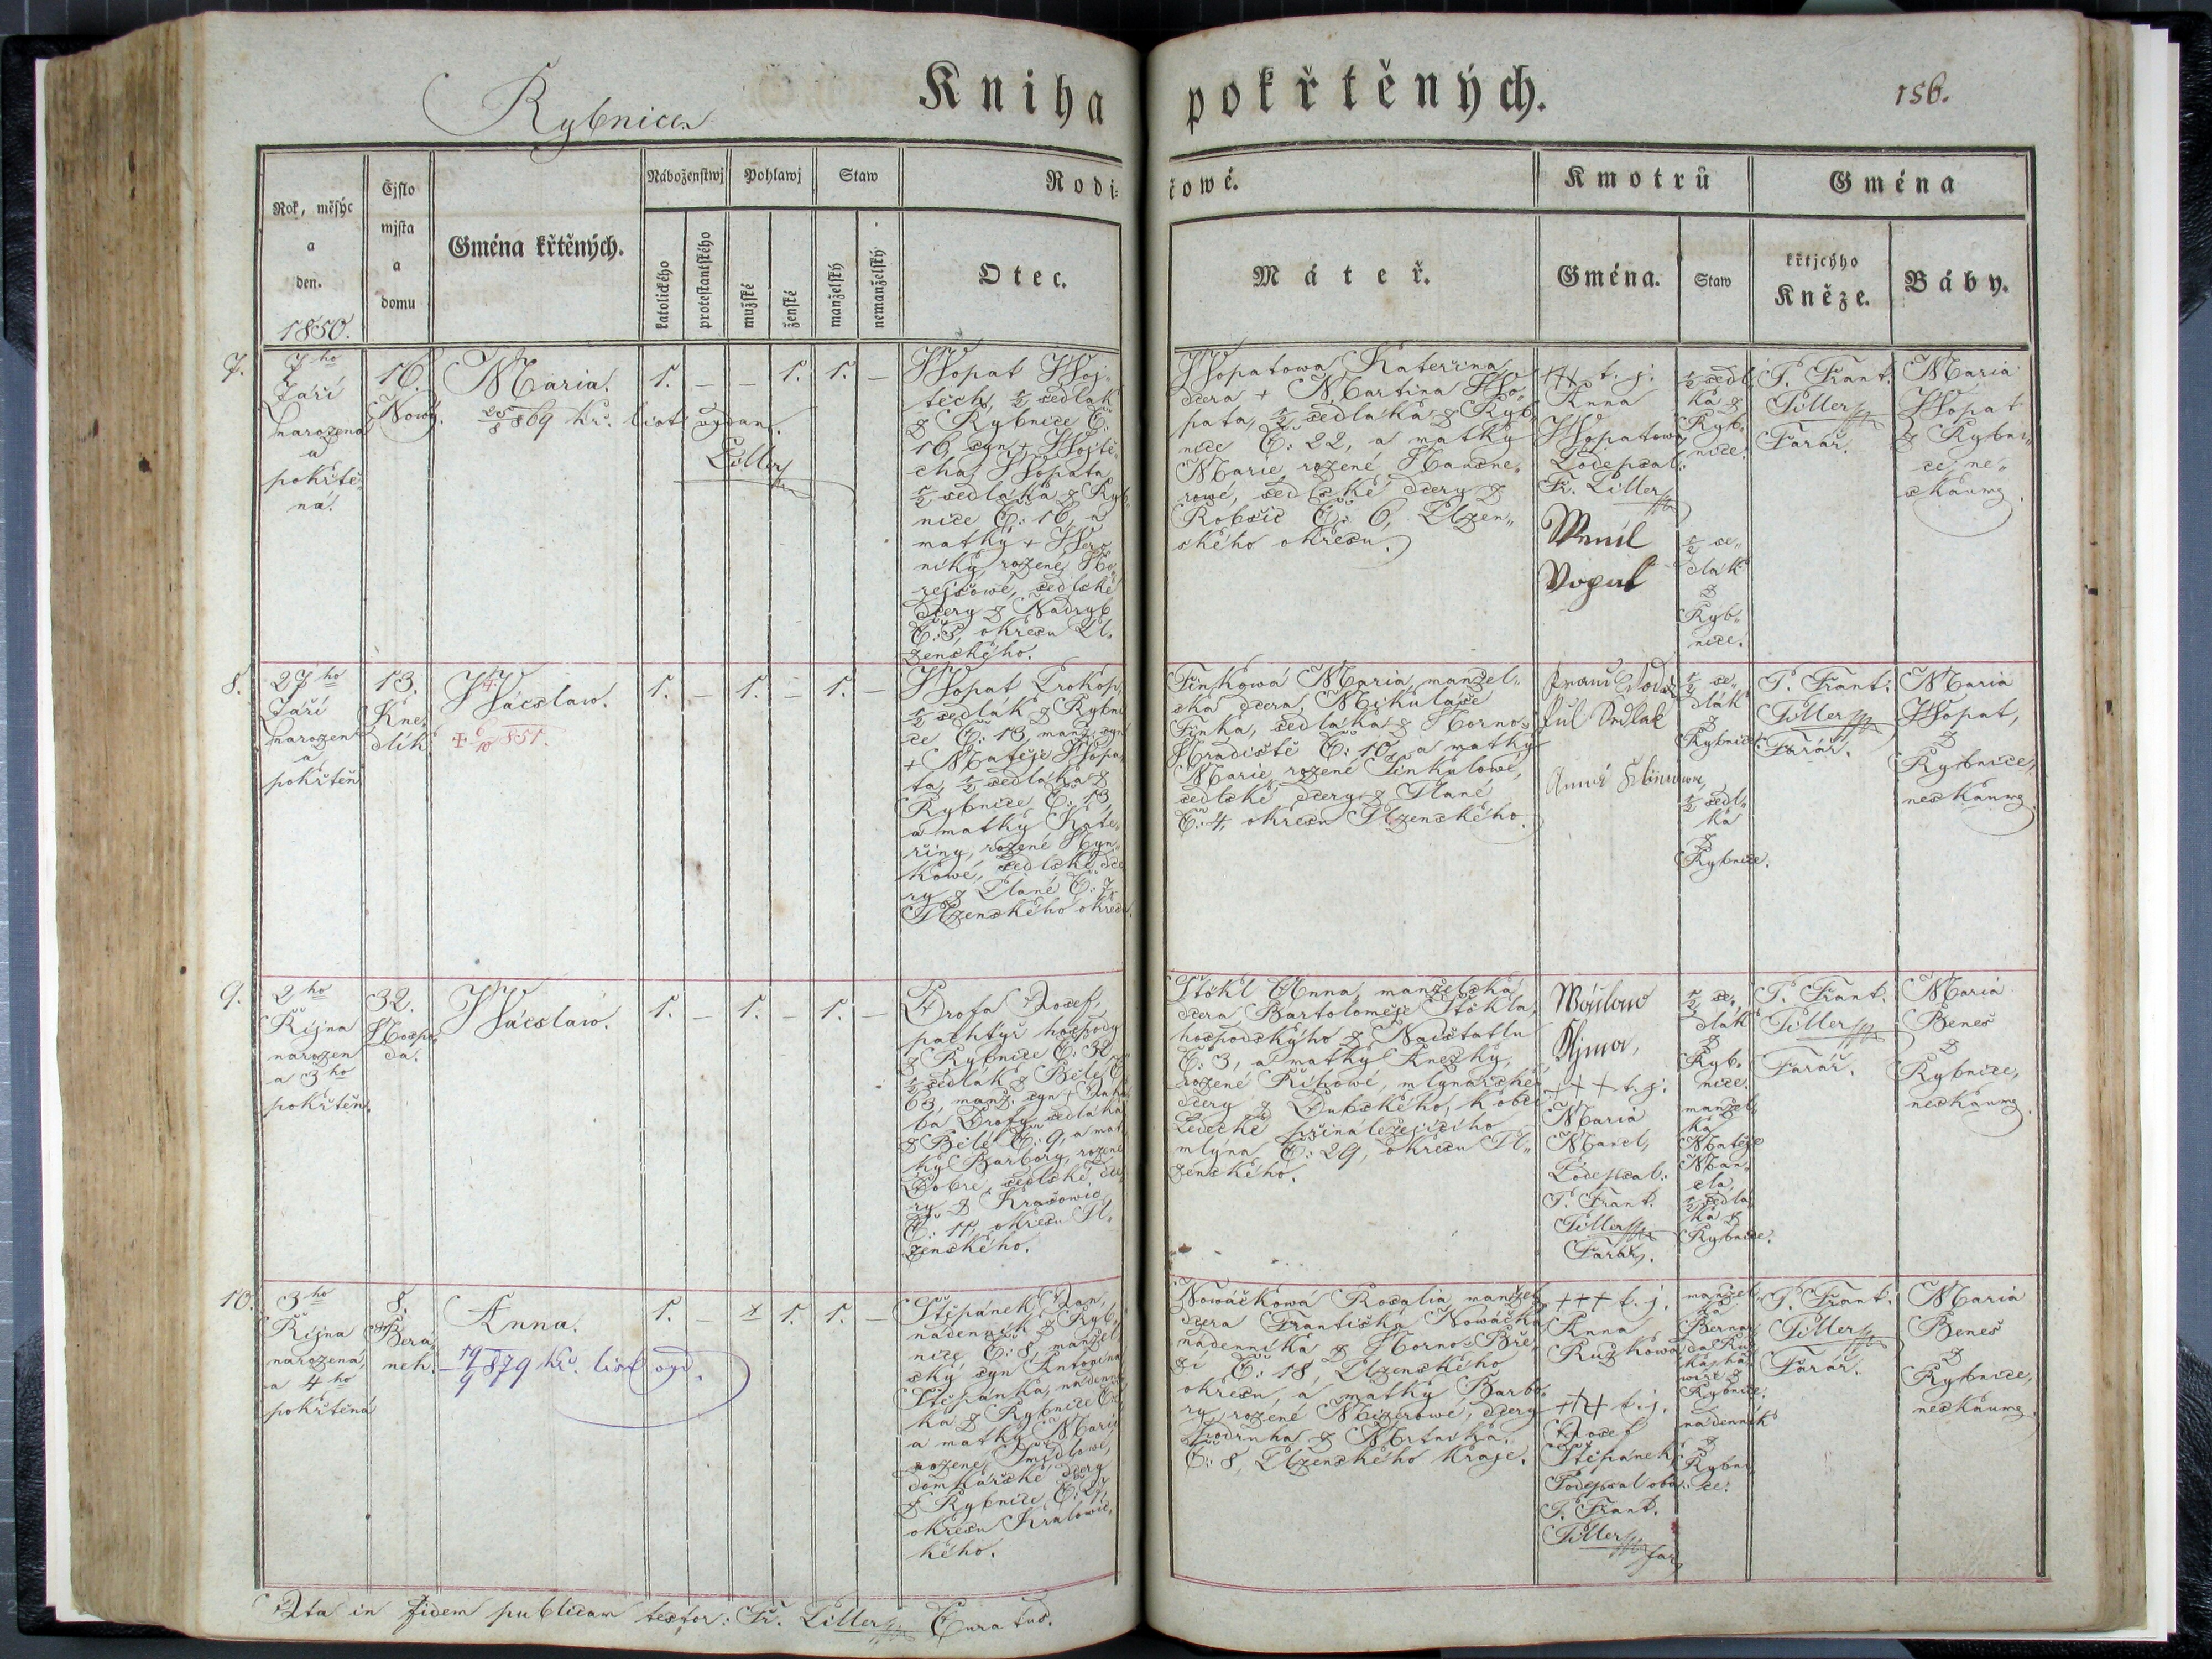 Rybnice
Kniha pokřtěných.
156.
Rok, měsýc
a
den.
1850.
Čjslo
mjsta
a
domu
Gména křtěných.
Náboženstwj
katolického
protestantského
Pohlawj
mužské
ženské
Staw
manželský
nemanželský
Rodi-
čowé.
Otec.
Máteř.
Kmotrů
Gména.
Staw
Gména
křtjcýho
Kněze.
Báby.
7.
7ho
Září
narozená
a
pokřtě-
ná.
16.
Nowý.
Maria.
25/8 869 kř. list wydan.
Tiller
1. – – 1. 1. –
Wopat Woj-
těch, 1/2 sedlák
z Rybnice Č:
16, syn + Wojtě-
cha Wopata
1/2 sedláka z Ryb-
nice Č: 16, a
matky + Wero-
niky, rozené Ho-
rejšowé, sedlské
dcery z Nadryb
Č: 3, okresu Pl-
zenského.
Wopatowa Kateřina
dcera + Martina Wo-
pata, 1/2 sedláka z Ryb-
nice Č: 22, a matky
Marie rozené
rowé, sedlské dcery z
Robčic Č: 6, Plzen-
ského okresu.
+++ t. j.
Anna
Wopatowa
Podepsal:
Fr. Tiller
1/2 sedl-
ká z
Ryb-
nice.
1/2 se-
dlák
z
Ryb-
nice.
P. Frant.
Tiller
Farář.
Maria
Wopat
z Rybni-
ce ne-
zkaumaná.
8.
27ho
Září
narozen
a
pokřtěn
13.
Kne-
dlík
Wácslaw.
+ 6/10 851.
1. – 1. – 1. –
Wopat Prokop,
1/2 sedlák z Rybni-
ce Č: 13, manž. syn
+ Matěje Wopa-
ta, 1/2 sedláka z
Rybnice Č: 13,
a matky Kate-
řiny, rozené Hyn-
kowé, sedlské dce-
ry z Plané Č: 7,
Plzenského okresu.
Finkowá Maria, manžel-
ská dcera, Mikuláše
Finka, sedláka z Horno-
Hradiště Č: 10, a matky
Marie rozené Sinkulowé,
sedlské dcery z Plané
Č: 4, okresu Plzenského.
půl Sedlak
1/2 se-
dlák
z
Rybnice.
1/2 sedl-
ká
z
Rybnice.
P. Frant.
Tiller
Farář.
Maria
Wopat,
z
Rybnice,
nezkaumaná.
9.
2ho
Října
narozen
a 3ho
pokřtěn.
32.
Hospo-
da.
Wácslaw.
1. – 1. – 1. –
Drofa Josef,
pachtýř hospody
z Rybnice Č: 32,
1/2 sedlák z Bílé Č:
63, manž. syn + Jaku-
ba Drofy, sedláka
z Bílé Č: 9, a mat-
ky Barbory, rozené
Dobré, sedlské dce-
ry z Krašowic
Č: 11, okresu Pl-
zenského.
Štökl Anna, manželská
dcera Bartoloměje Štökla,
hospodského z Naištatlu
Č: 3, a matky Anežky,
rozené Říhowé, mlynářské
dcery z Dubského, k obci
Ledecké přináležejícího
mlýna Č: 29, okresu Pl-
zenského.
Wáclaw
Klyma,
+++ t. j.
Maria
Mancl,
Podepsal:
P. Frant.
Tiller
Farář.
1/2 se-
dlák
z
Ryb-
nice.
manžel-
ka
Matěje
Man-
cla,
1/2 sedlá-
ka z
Rybnice.
P. Frant.
Tiller
Farář.
Maria
Beneš
z
Rybnice,
nezkaumaná.
10.
3ho
Října
narozená,
a 4ho
pokřtěná
8.
Bera-
nek.
Anna.
19/9 879 kř. list wyd.
1. – x 1. 1. –
Štěpánek Jan,
nádenník z Ryb-
nice Č: 8, manžel-
ský syn Antonína
Štěpánka, nádenní-
ka z Rybnice Č:
a matky Marie
rozené Šmídlowé,
domkářské dcery
z Rybnice Č: 27,
okresu Králowic-
kého.
Nowáčkowá Rosalia, manžel.
dcera Františka Nowáčka
nádenníka z Horno-Bře-
zi Č: 18, Plzenského
okresu, a matky Barbo-
ry, rozené Meizerowé, dcery
podruha z Mrtníka,
Č: 8, Plzenského kraje.
+++ t. j.
Anna
Ružkowa
+++ t. j.
Josef
Štěpánek
Podepsal oba:
P. Frant.
Tiller
far.
manžel-
ka
Bernar-
da Ruž-
Rybnice.
nádenník
z
Rybni-
ce.
P. Frant.
Tiller
Farář.
Maria
Beneš
z
Rybnice,
nezkaumaná.
Ita in fidem publicam testor: Fr. Tiller Curatus.